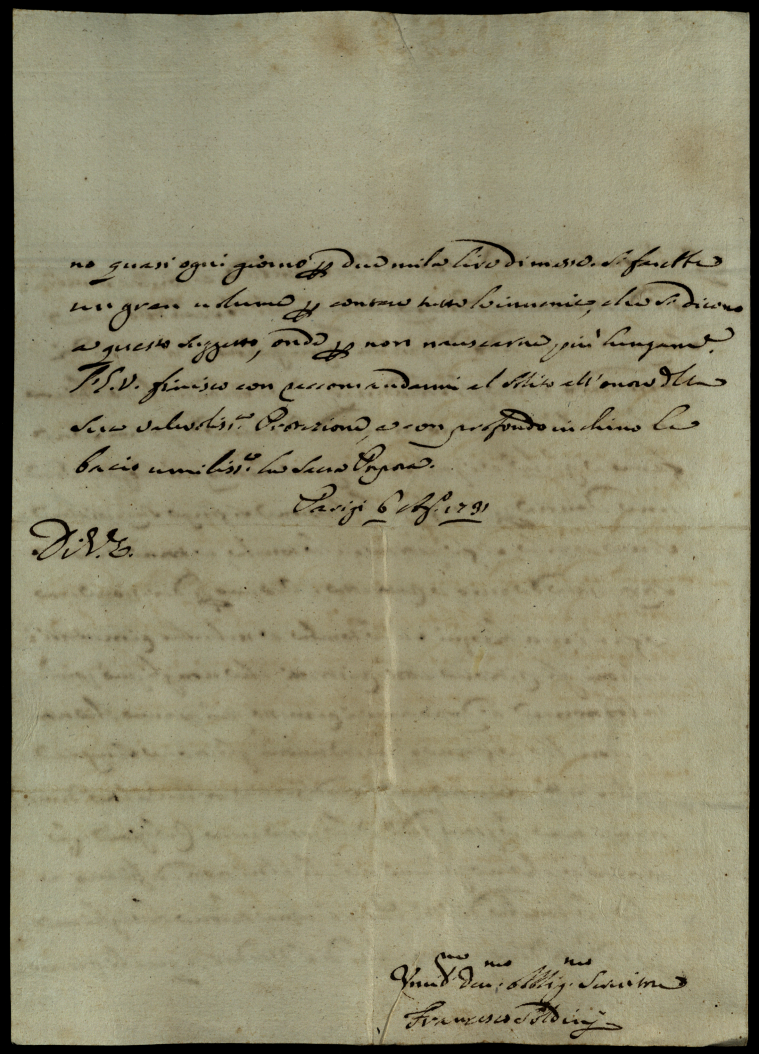 no quasi ogni giorno p due mila lire di messe. Si farebbe
un gran volume p contare tutte le invenie, che si dicono
a questo suggetto, onde p non nausearne più lungame.
V.S.V. finisco con raccomandarmi al solito all'onore della
Sua valevoliss.ma Protezione, e con profondo inchino le
bacio umiliss.te la Sacra Porpora.
Parigi 6 Ag.o 1731
Di V. E.
Umil.mo Dev.mo Obblig.mo Servitore
Francesco Soldini